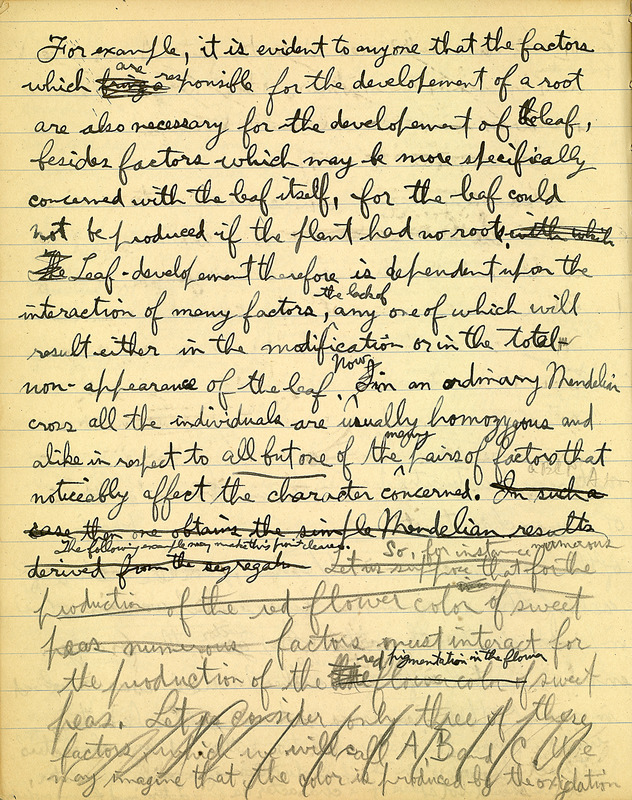 For example, it is evident to anyone that the factors
which are responsible for the developement of a root
are also necessary for the developement of the leaf,
besides factors which may be more specifically
concerned with the leaf itself, for the leaf could
not be produced if the plant had no roots. with which
The Leaf-developement therefore is dependent upon the
the lack of
interaction of many factors, any one of which will
result either in the modification or in the total
non-appearance of the leaf. Now in an ordinary Mendelian
cross all the individuals are usually homozygous and
many
alike in respect to all but one of the pairs of factors that
noticeably affect the character concerned. In such a
case then one obtains the simple Mendelian results
The following example may make this point clearer.
So, for instance, numerous
derived from the segregatn Let us suppose that for the
production of the red flower color of sweet
peas numerous factors must interact for
red pigmentation in the flower
the production of the flower color of sweet
peas. Let us consider only three of these
factors, which we will call A, B and C. We
may imagine that the color is produced by the oxidation